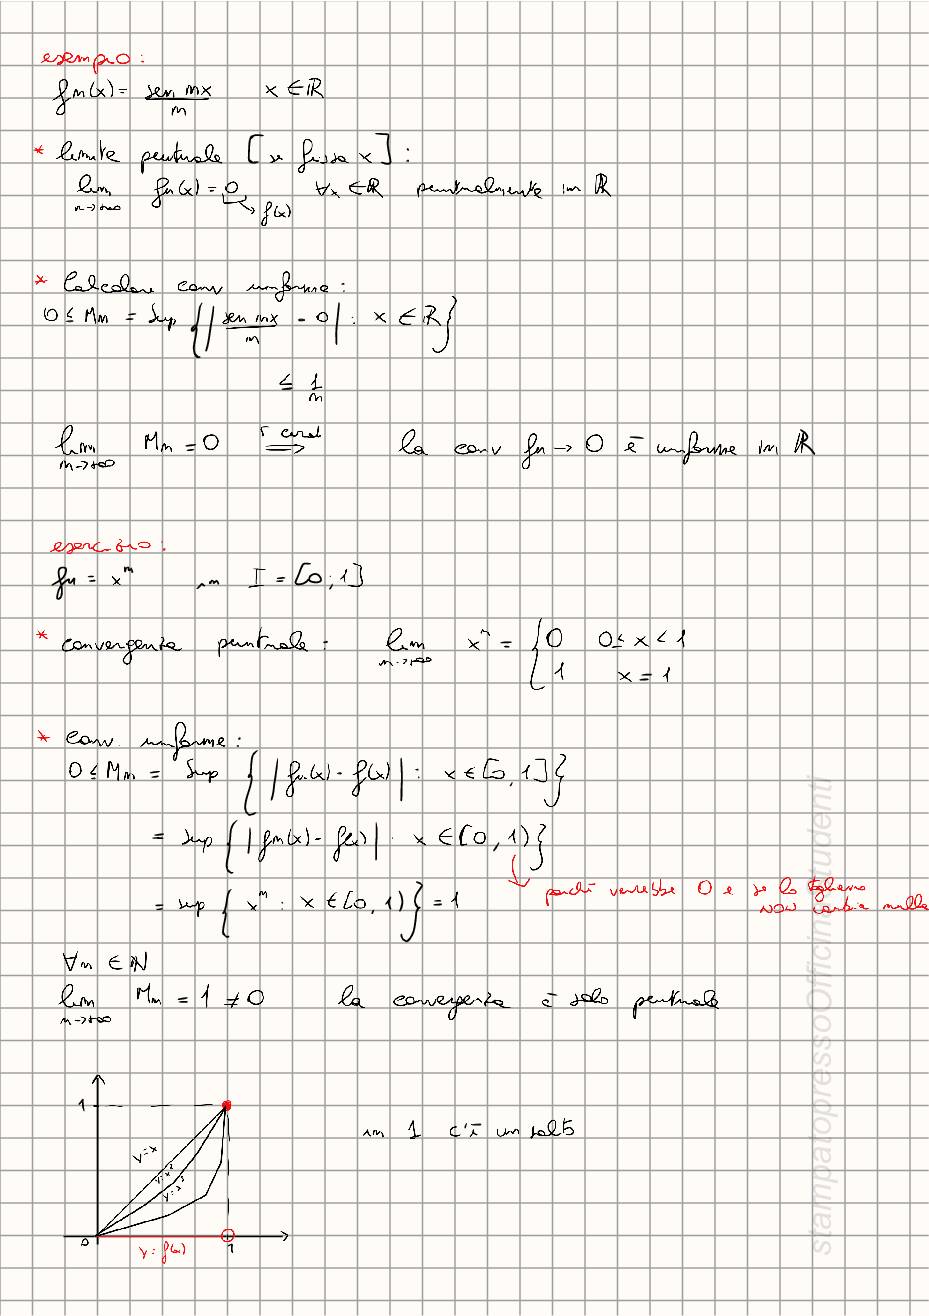 esempio:
fn(x) = sen nx / n   x ∈ ℝ
* limite puntuale [se fisso x]:
lim n→+∞ fn(x) = 0   ∀x ∈ ℝ   puntualmente in ℝ
f(x)
* Calcolare conv uniforme:
0 ≤ Mn = Sup { | sen nx / n - 0 | : x ∈ ℝ }
≤ 1/n
lim n→+∞ Mn = 0 ⟹ la conv fn → 0 è uniforme in ℝ
esercizio:
fn = x^n   in   I = [0,1]
* convergenza puntuale:   lim n→+∞ x^n = { 0   0 ≤ x < 1
1   x = 1
* Conv. uniforme:
0 ≤ Mn = Sup { | fn(x) - f(x) | : x ∈ [0,1] }
= sup { | fn(x) - f(x) | : x ∈ [0,1) }
perché verrebbe 0 e se lo togliamo
NON cambia nulla
= sup { x^n : x ∈ [0,1) } = 1
∀n ∈ ℕ
lim n→+∞ Mn = 1 ≠ 0   la convergenza è solo puntuale
1
in 1 c'è un salto
y=x
y=x²
y=x³
0
1
y=f(x)
stampatopressoOfficin tudenti